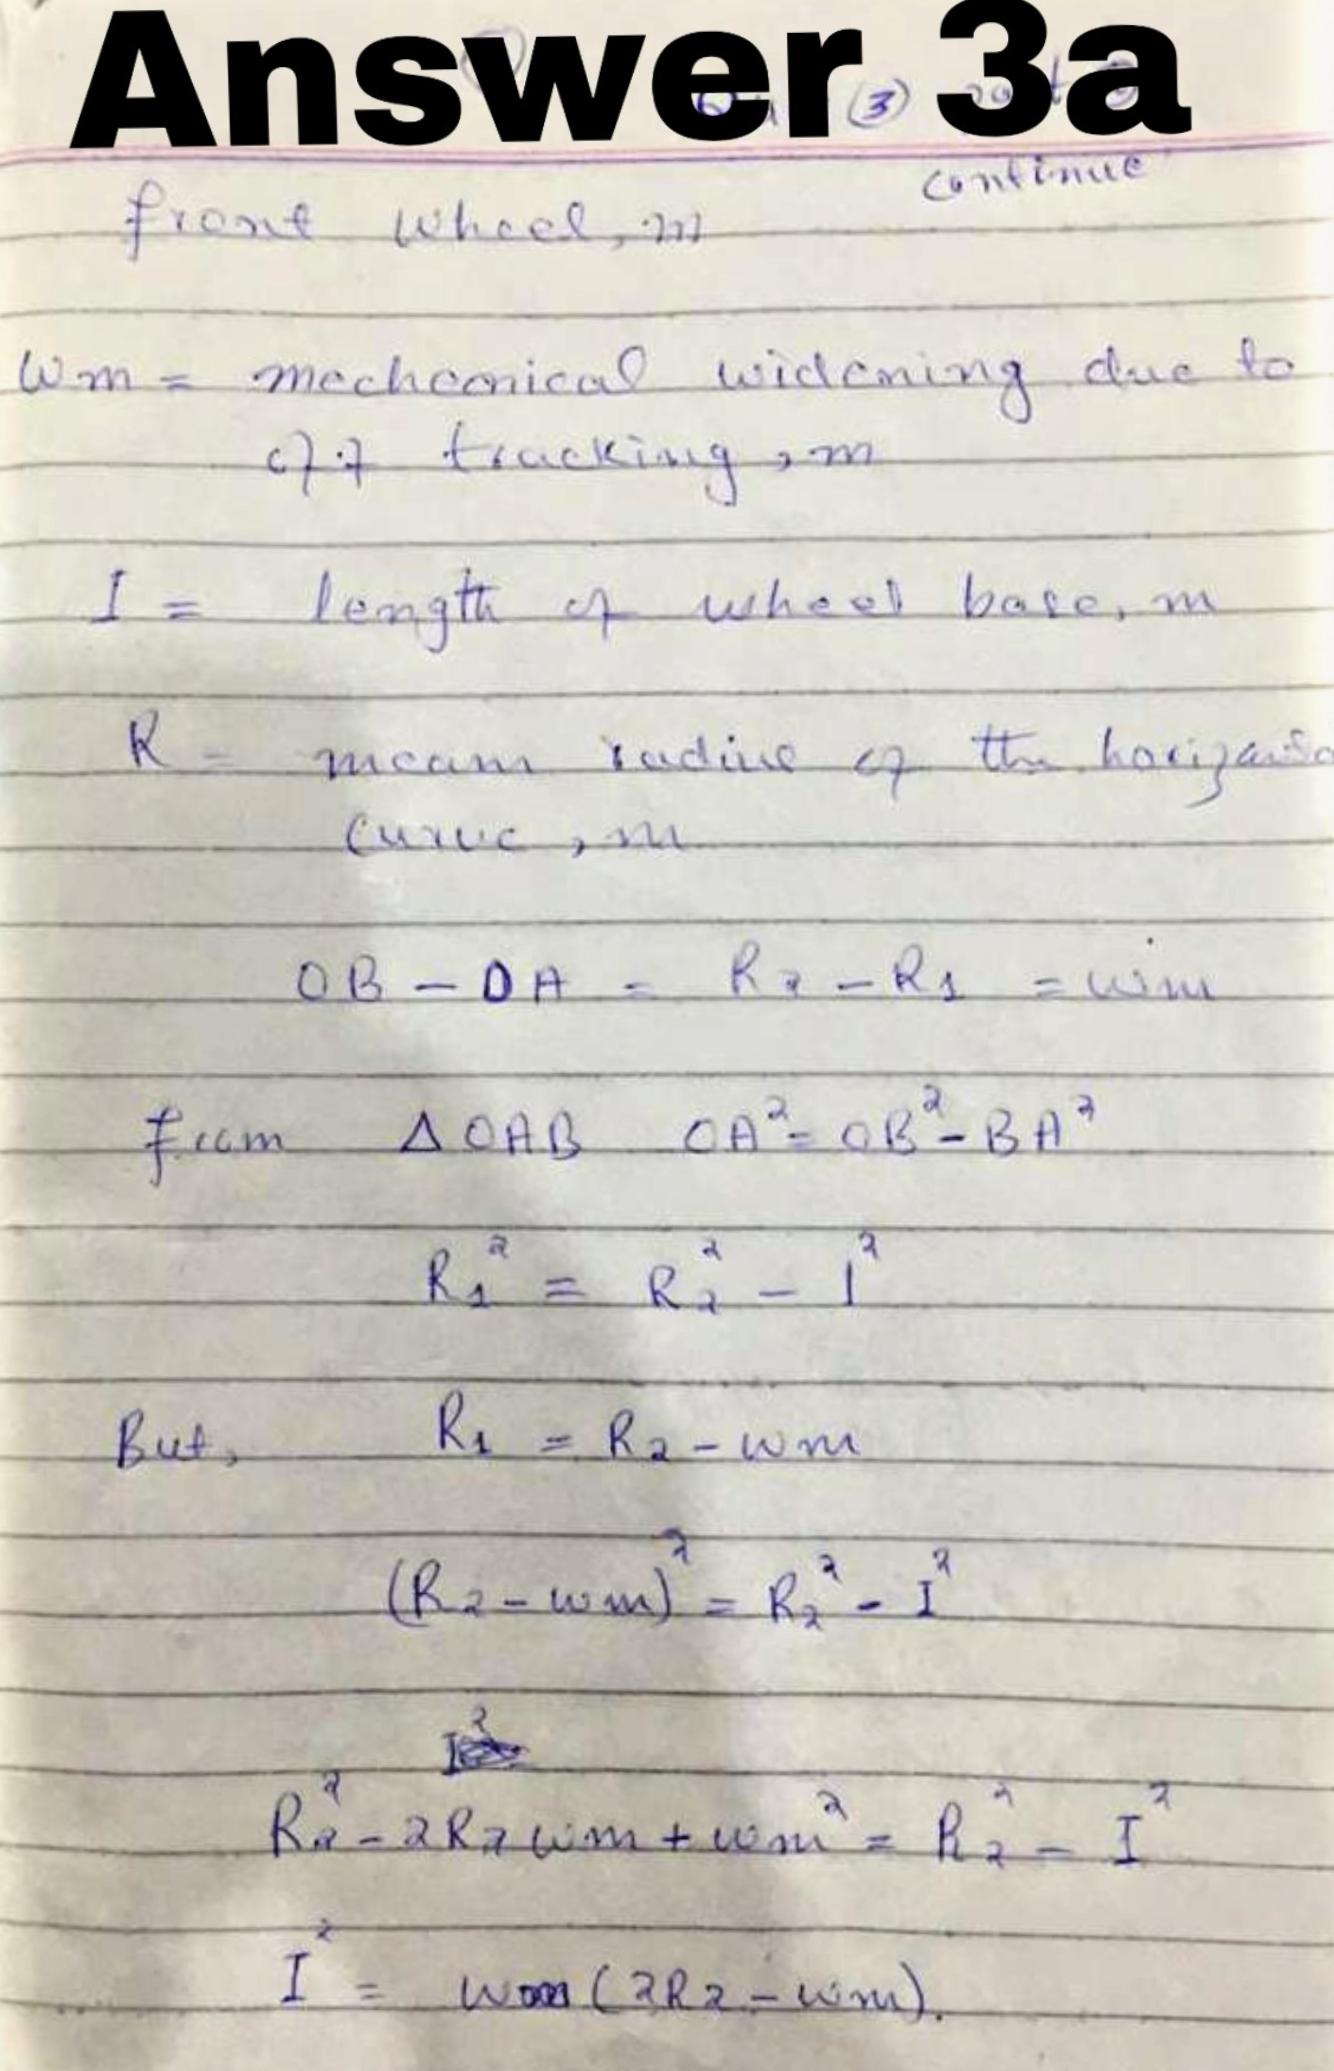 Answer 3a
(3)
continue
front wheel, m
Wm = mechanical widening due to
off tracking, m
I = length of wheel base, m
R = mean radius of the
curve, m
OB - OA = R2 - R1 = wm
from Δ OAB OA² = OB² - BA²
R1² = R2² - I²
But, R1 = R2 - wm
(R2 - wm)² = R2² - I²
R2² - 2R2 wm + wm² = R2² - I²
I² = wm (2R2 - wm).